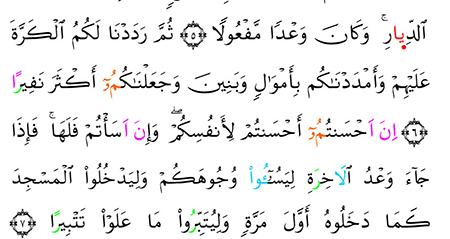 الدِّيارِۚ وَكَانَ وَعْدًا مَّفْعُولًا ۝٥ ثُمَّ رَدَدْنَا لَكُمُ الْكَرَّةَ
عَلَيْهِمْ وَأَمْدَدْنَاكُم بِأَمْوَالٍ وَبَنِينَ وَجَعَلْنَاكُمُۥٓ أَكْثَرَ نَفِيرًا
۝٦ اِنَ اَحْسَنتُمُۥٓ أَحْسَنتُمْ لِأَنفُسِكُمْۖ وَإِنَ اَسَأْتُمْ فَلَهَاۚ فَإِذَا
جَآءَ وَعْدُ الَاخِرَةِ لِيَسُـۥٓـُٔواْ وُجُوهَكُمْ وَلِيَدْخُلُواْ الْمَسْجِدَ
كَمَا دَخَلُوهُ أَوَّلَ مَرَّةٍ وَلِيُتَبِّرُواْ مَا عَلَوْاْ تَتْبِيرًا ۝٧